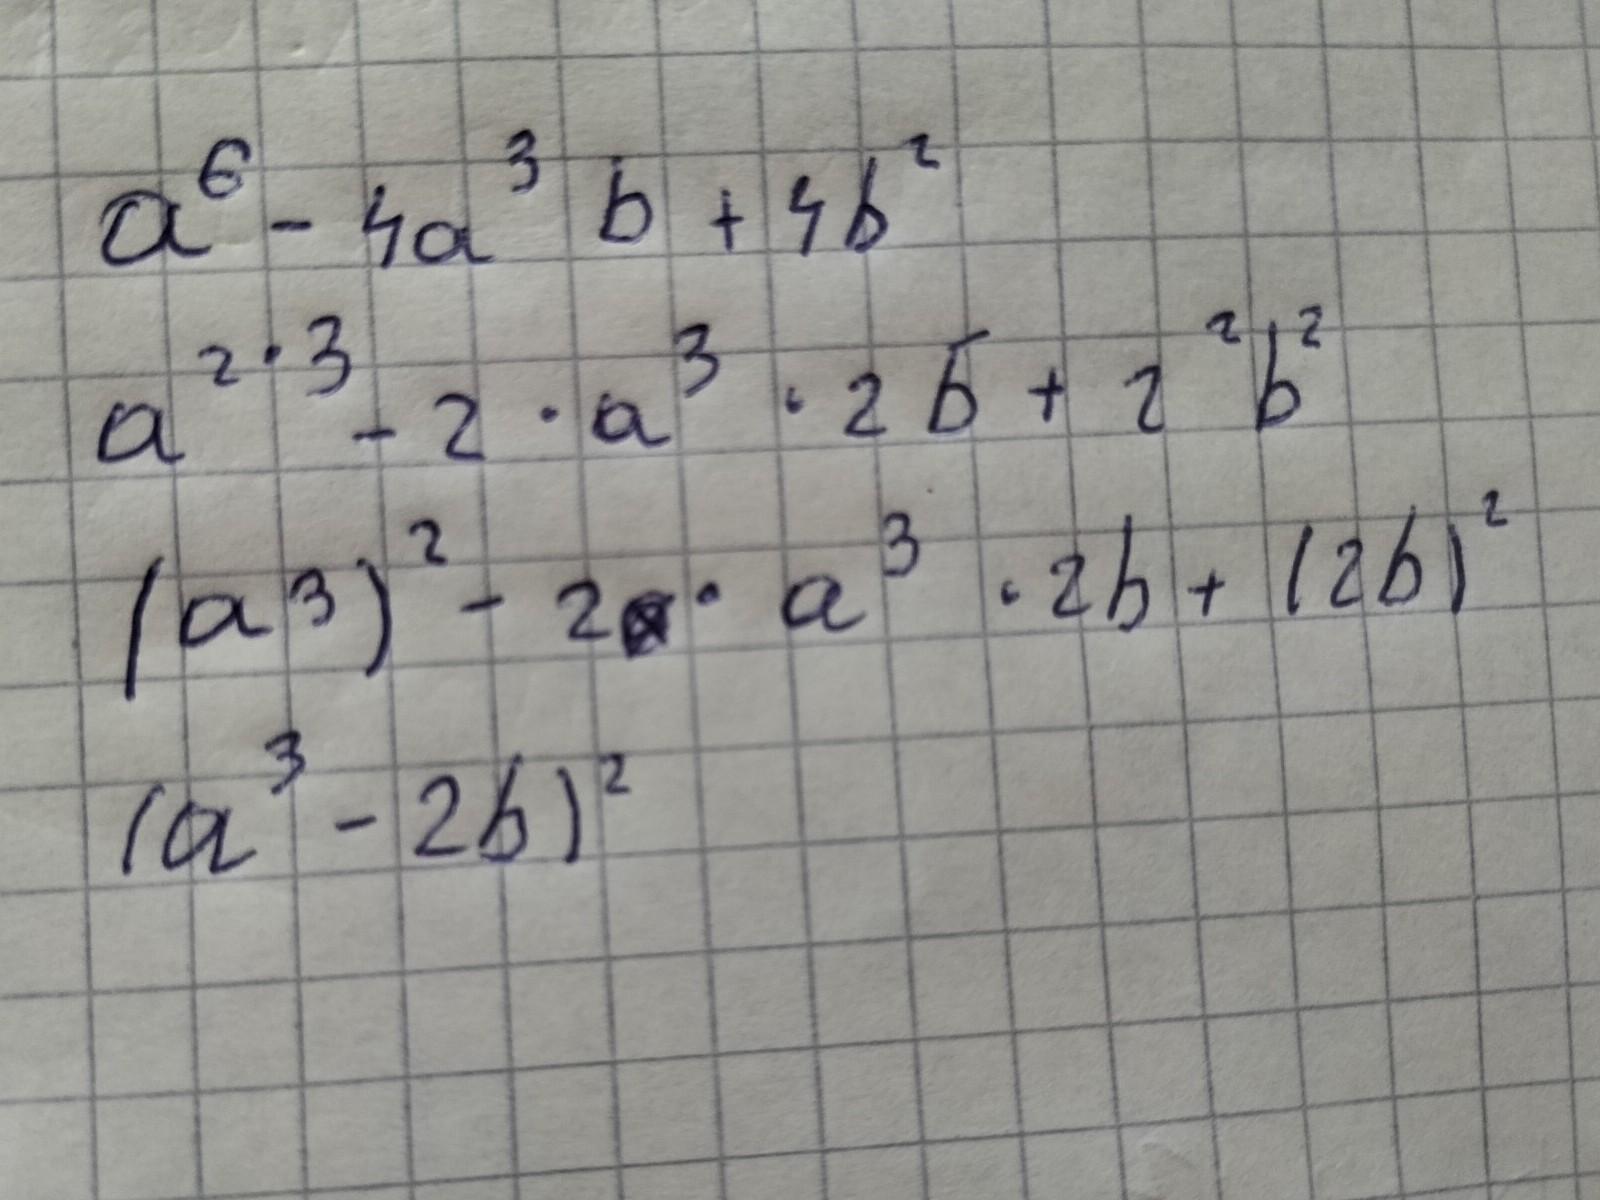 a⁶ - 4a³ b + 4b²
a²·³ - 2 · a³ · 2b + 2²b²
(a3)² - 2 · a³ · 2b + (2b)²
(a³ - 2b)²